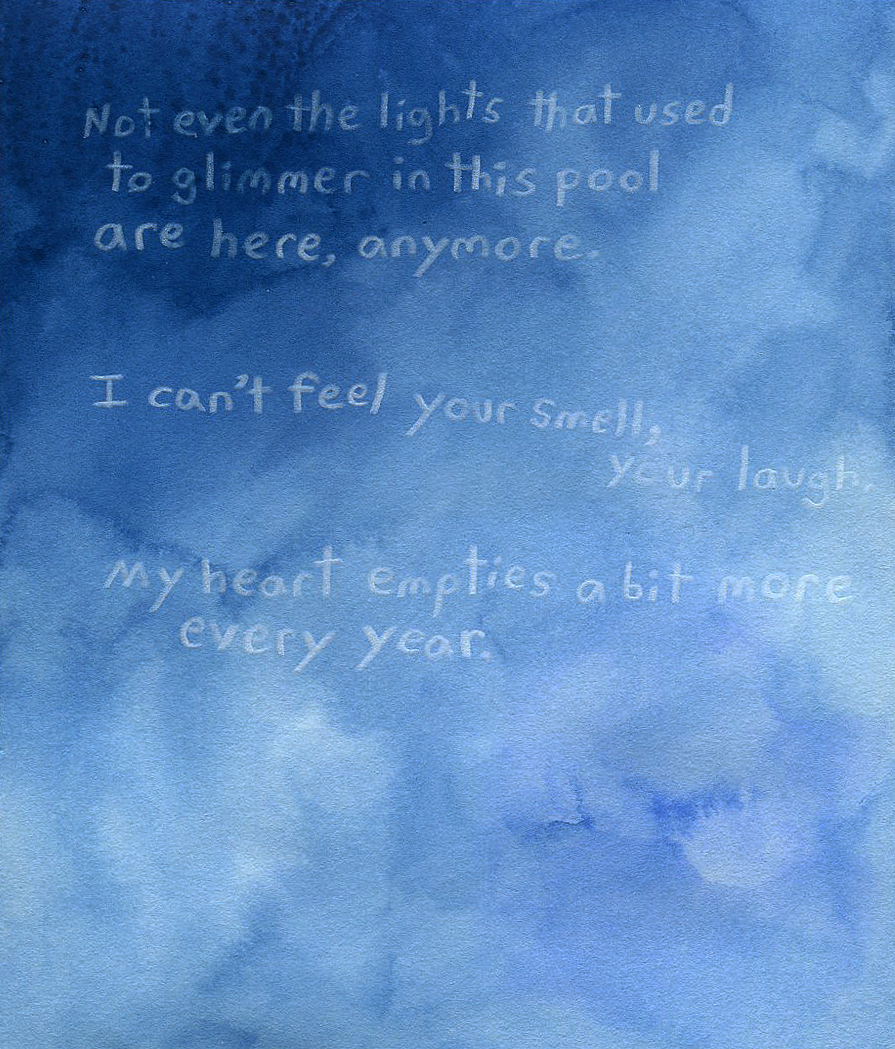 Not even the lights that used
to glimmer in this pool
are here, anymore.
I can't feel your smell,
your laugh.
My heart empties a bit more
every year.